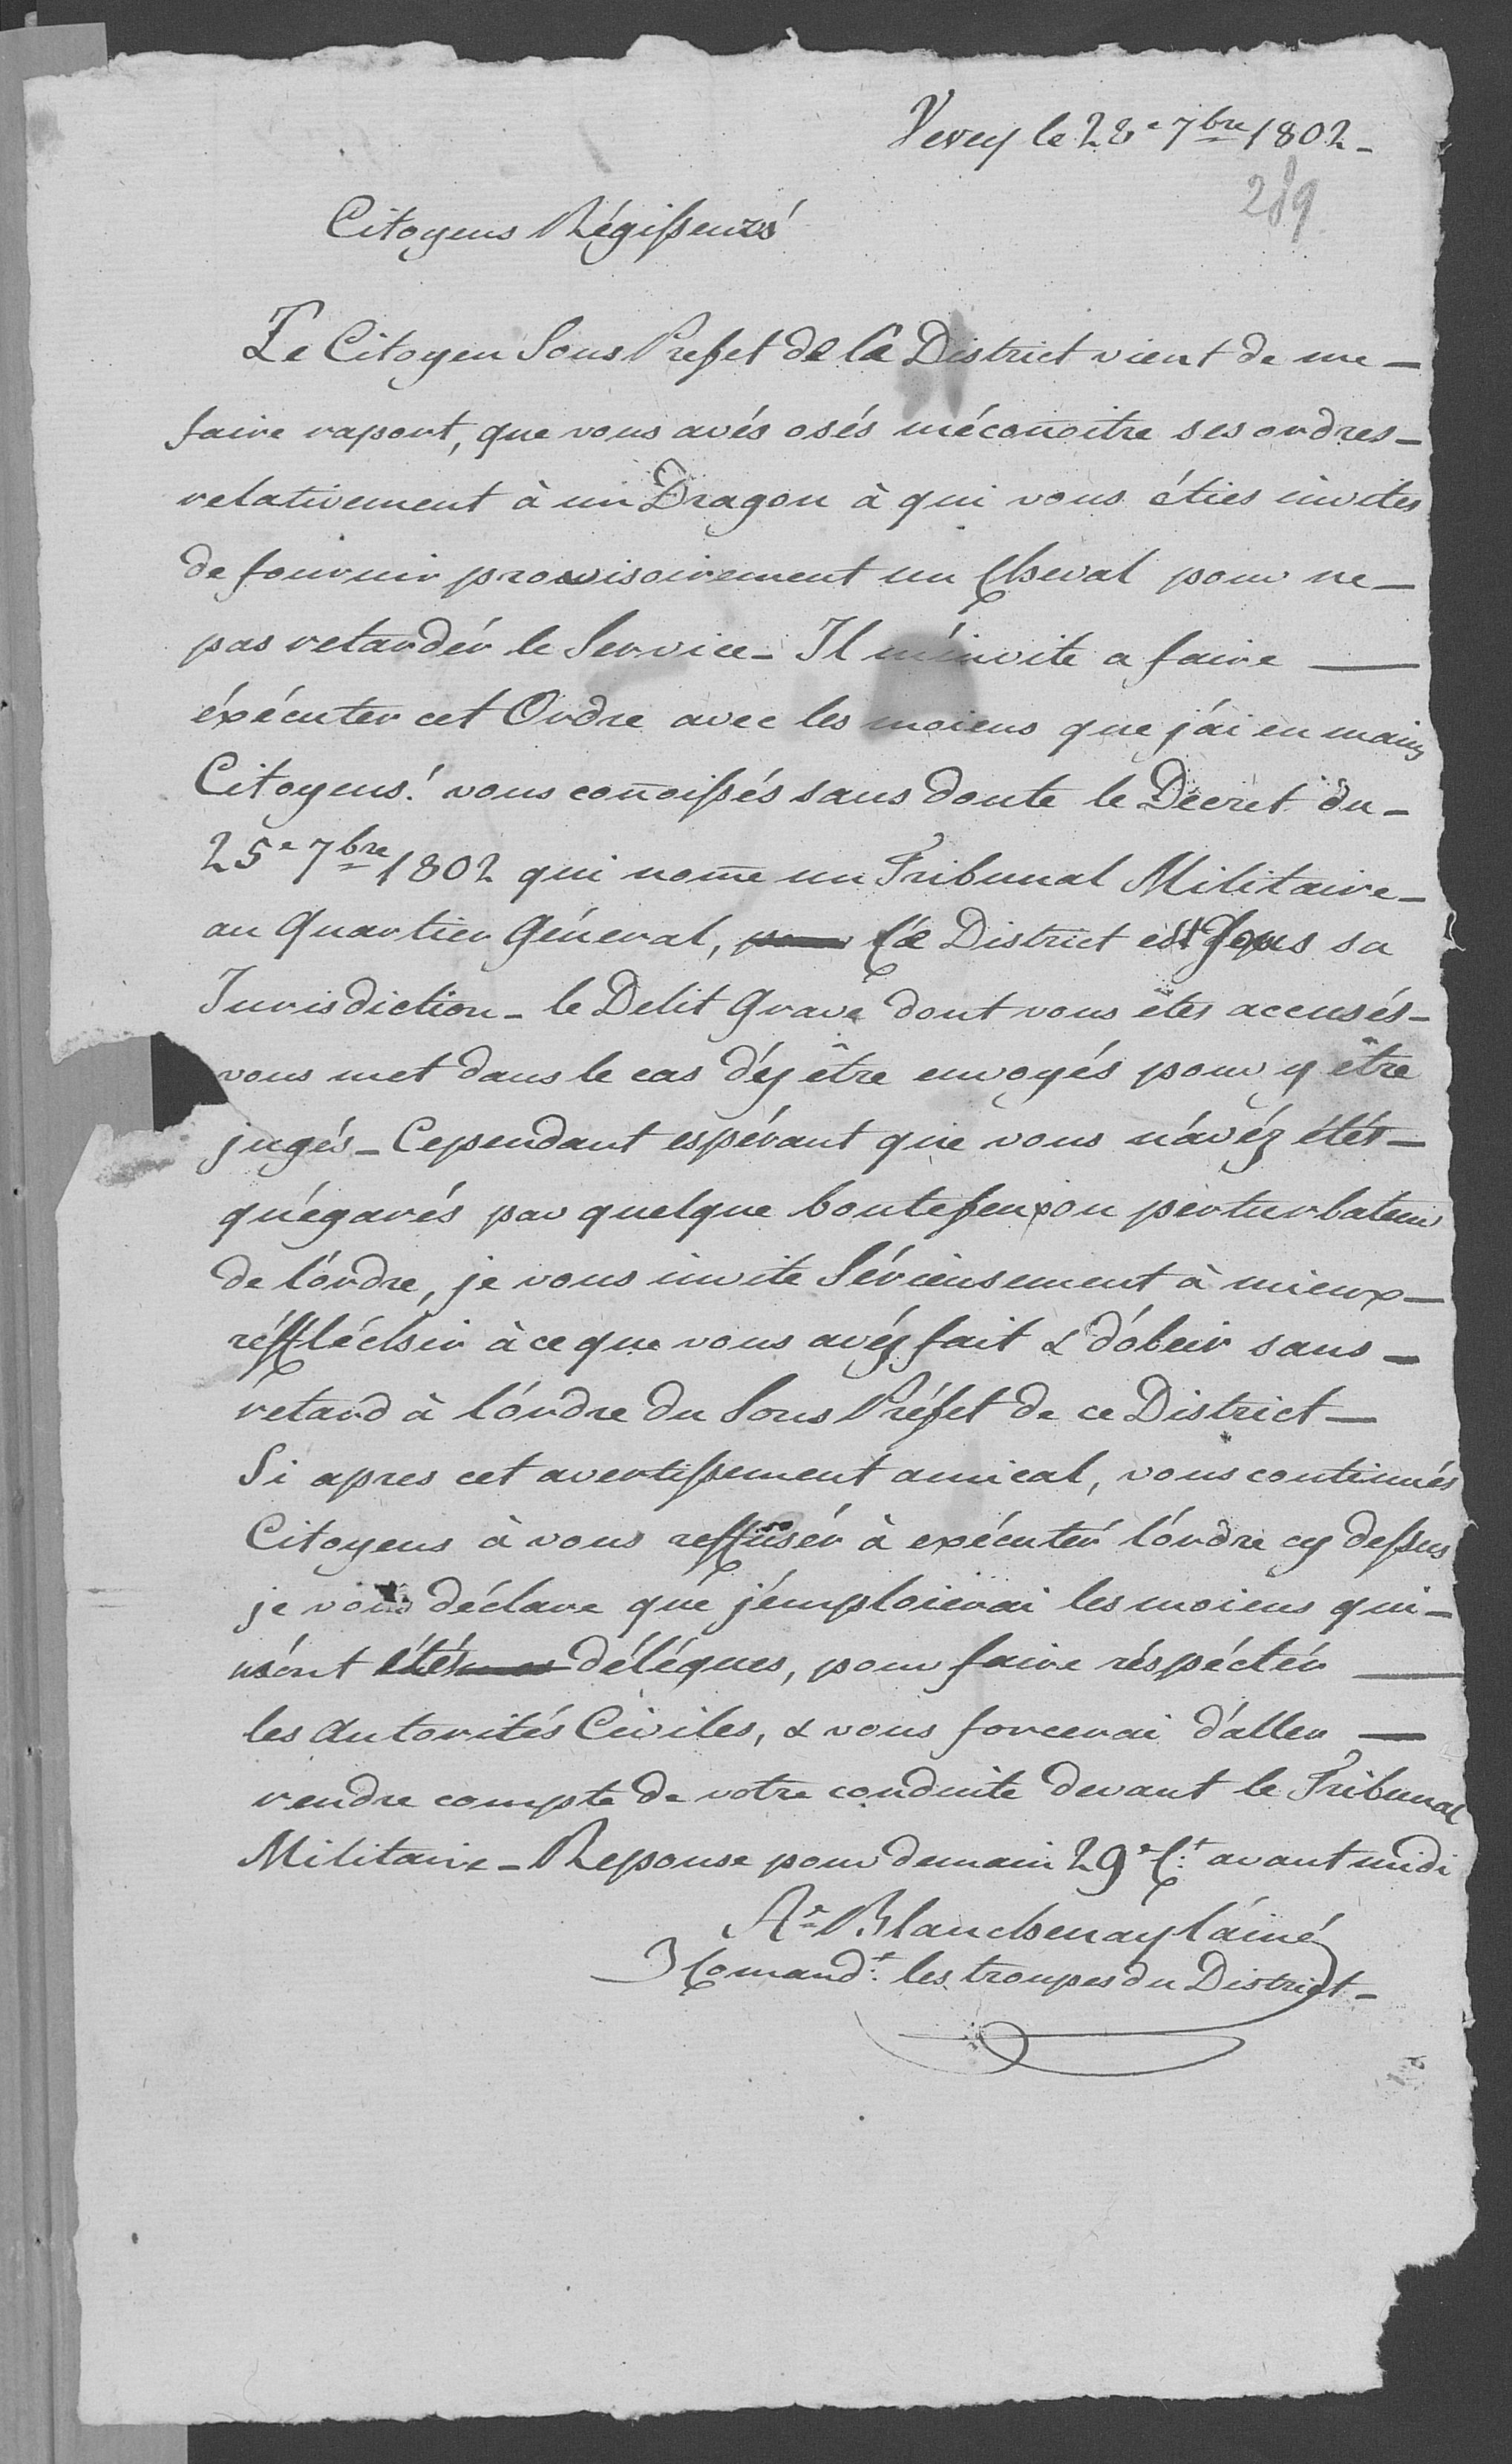 Vevey le 28e 7bre 1802.
289
Citoyens Régisseurs!
Le Citoyen Sous Prefet de ce District vient de me
faire raport, que vous avés osés méconoitre ses ordres
relativement à un Dragon à qui vous éties invites
de fournir provisoirement un Cheval pour ne
pas retardér le Service_ Il m'invite a faire
éxécuter cet Ordre avec les moiens que j'ai en mains
Citoyens! vous conoissés sans doute le Décret du
25e 7bre 1802 qui nome un Tribunal Militaire
au Quartier Géneral, Ce District est sous sa
Jurisdiction_ le Delit Grave dont vous étes accusés
vous met dans le cas d'ÿ être envoyés pour y être
jugés_ Cependant espérant que vous n'avéz étés
qu'égarés par quelque boutefeux ou perturbateur
de l'ordre, je vous invite Sérieusement à mieux
réffléchir à ce que vous avéz fait & d'obeir sans
retard à l'ordre du Sous Préfet de ce District_
Si apres cet avertissement amical, vous continués
Citoyens à vous reffusér à exécutér l'ordre cy dessus
je vous déclare que j'emploierai les moiens qui
m'ont étés délégues, pour faire réspéctér
les Autorités Civiles, & vous forcerai d'aller
rendre compte de votre conduite devant le Tribunal
Militaire_ Reponse pour demain 29e Ct avant midi
Ae Blanchenay l'ainé
Comandt les troupes du District_